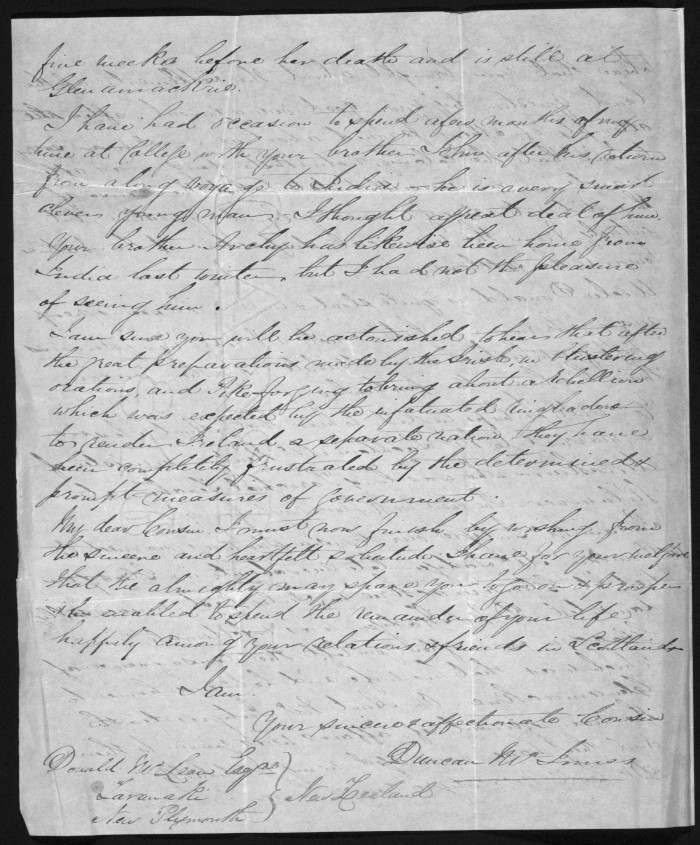 five weeks before her death and is still at
Glenamackrie.
I have had occasion to spend a few months of my
time at College with your brother John after his return
from a long voyage to India - he is a very smart
clever young man, I thought a great deal of him
Your brother Archy has likewise been home from
India last winter, but I had not the pleasure
of seeing him.
I am sure you will be astonished to hear that after
the great preparations made by the Irish, in blustering
orations, and Pike forging to bring about a rebellion
which was expected by the infatuated ringleaders
to render Ireland a separate nation they have
been completely frustrated by the determined &
prompt measures of government.
My dear Cousin I must now finish by wishing from
the sincere and heartfelt solicitude I have for your welfare
that the almighty may spare you to go on & prosper
& be enabled to spend the remainder of your life
happily among your relations & friends in Scotland
I am
Your sincere & affectionate Cousin
Duncan McInnes
Donald McLean Esqre
Taranaki
New Plymouth
New Zealand